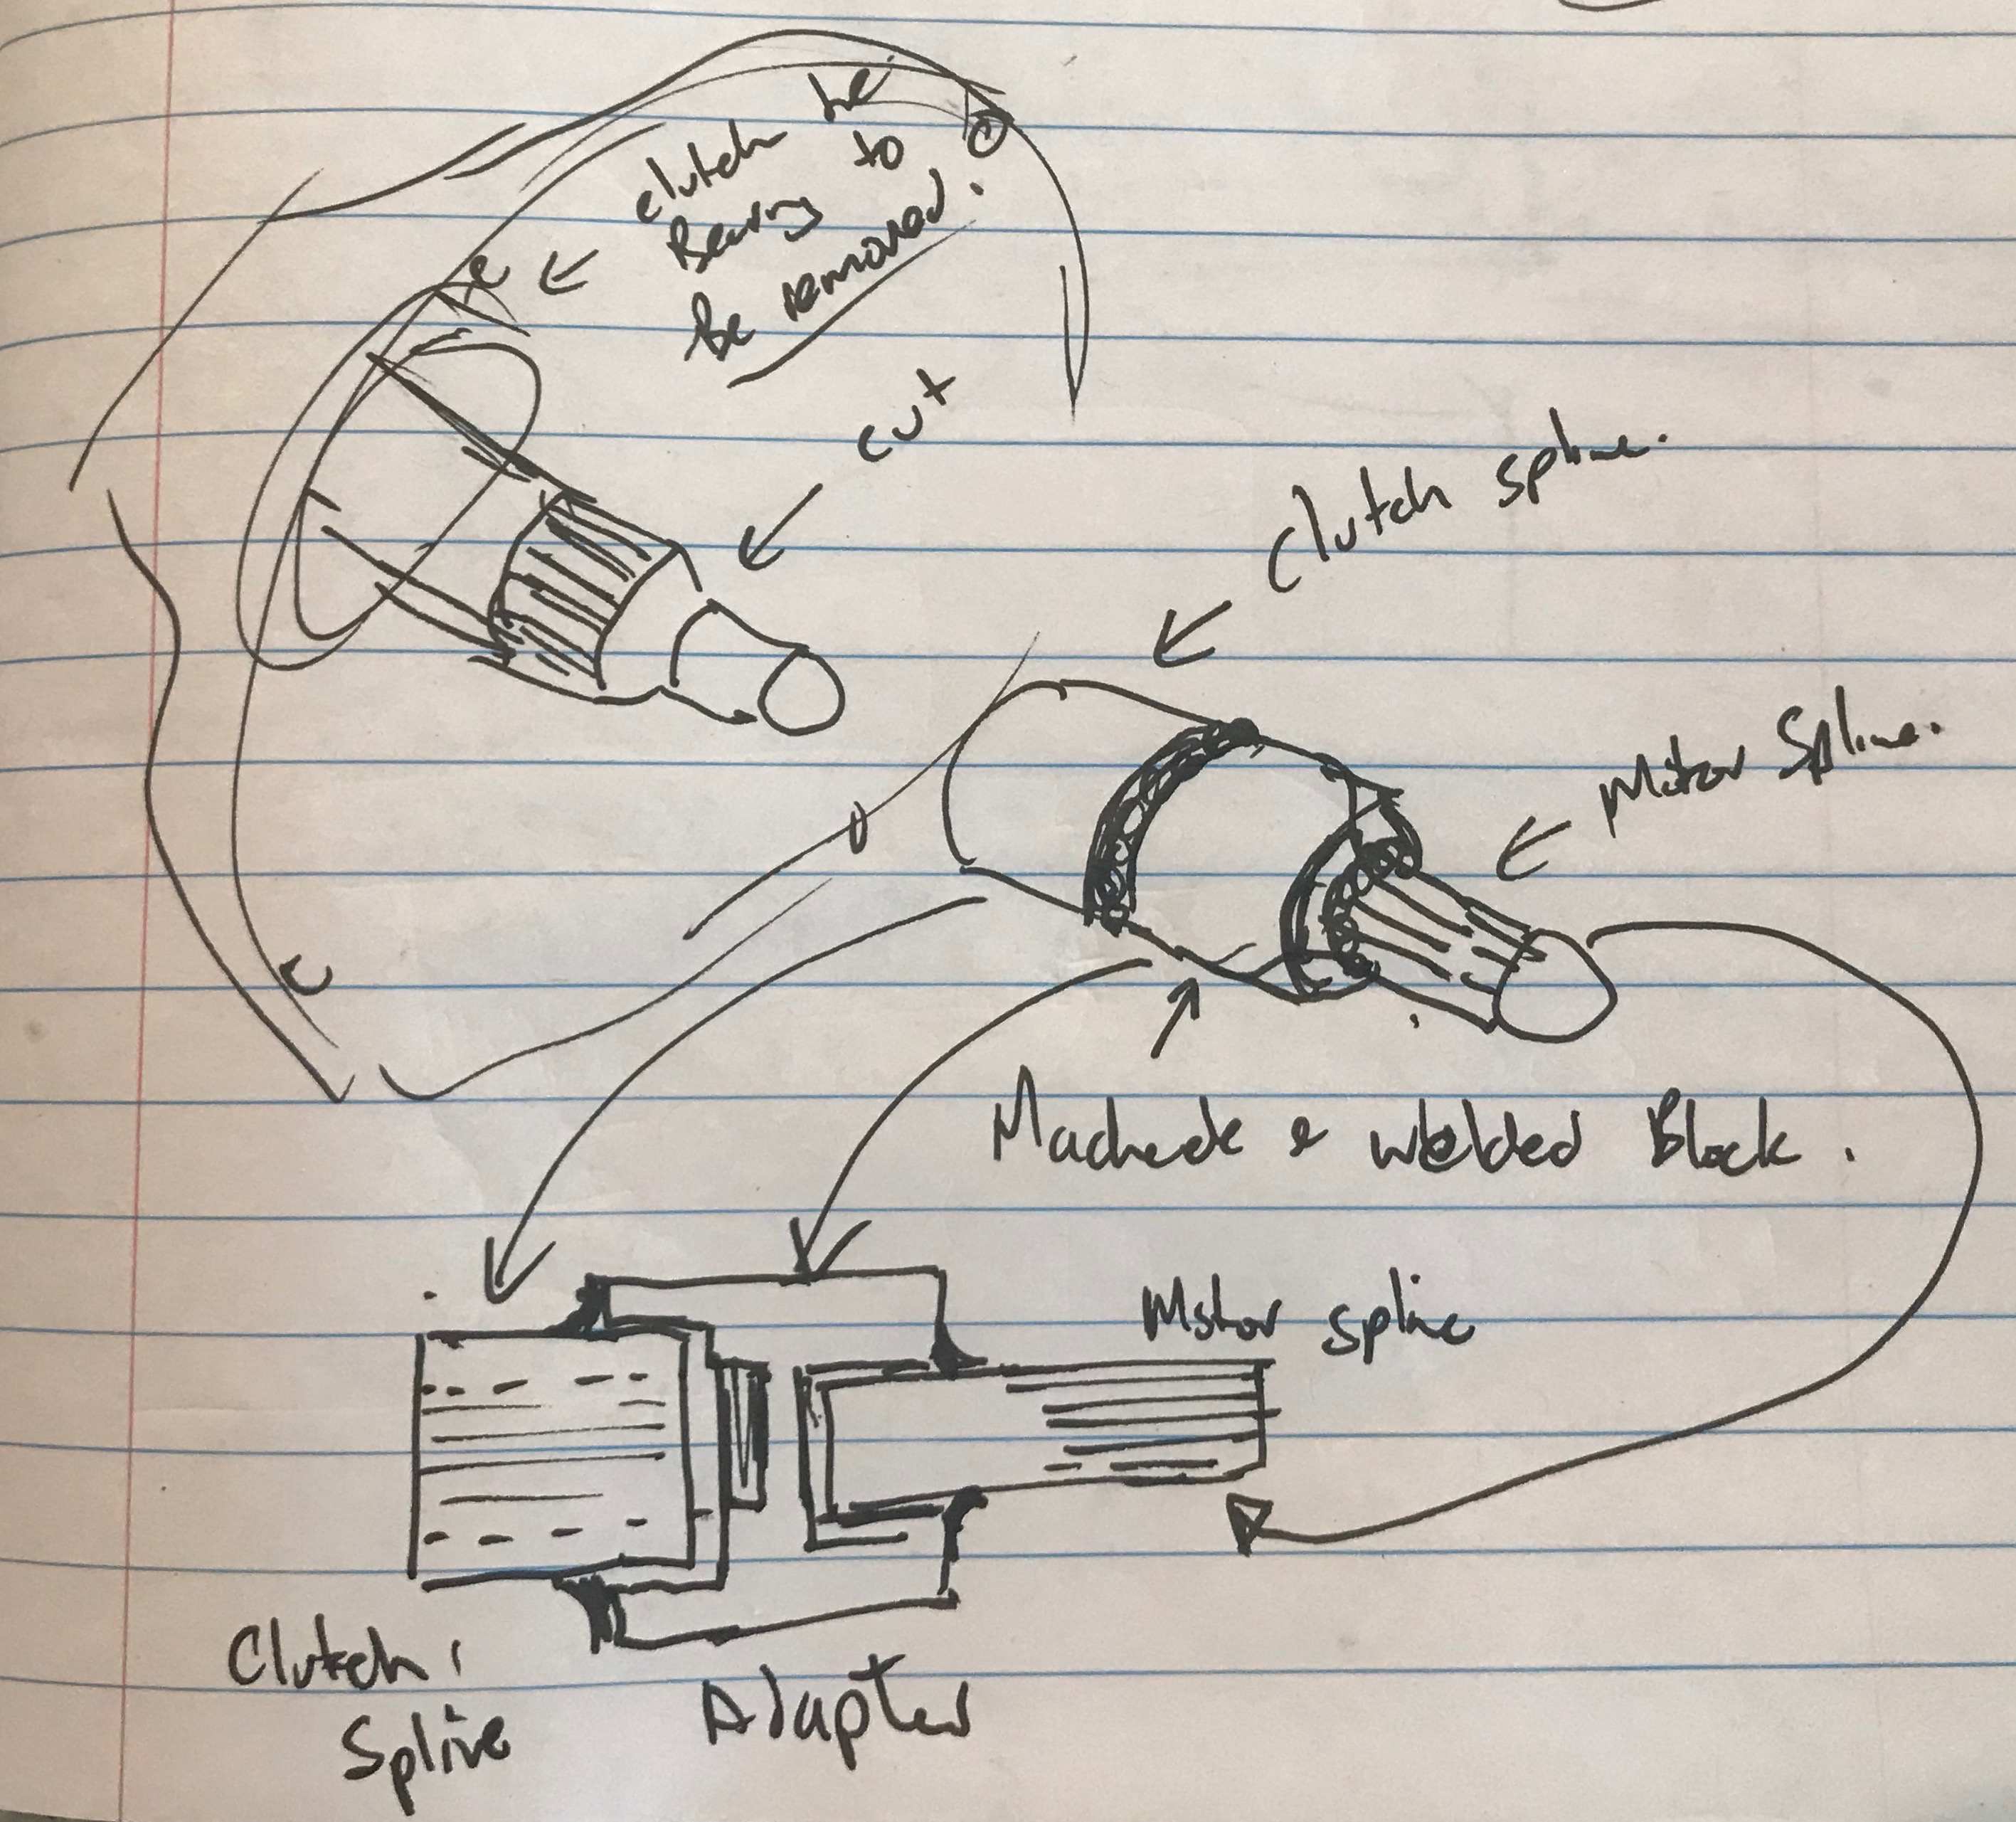 clutch
Bearing to
Be removed.
cut
Clutch spline.
Motor Spline.
& welded Block.
Motor spline
Clutch
Spline
Adapter